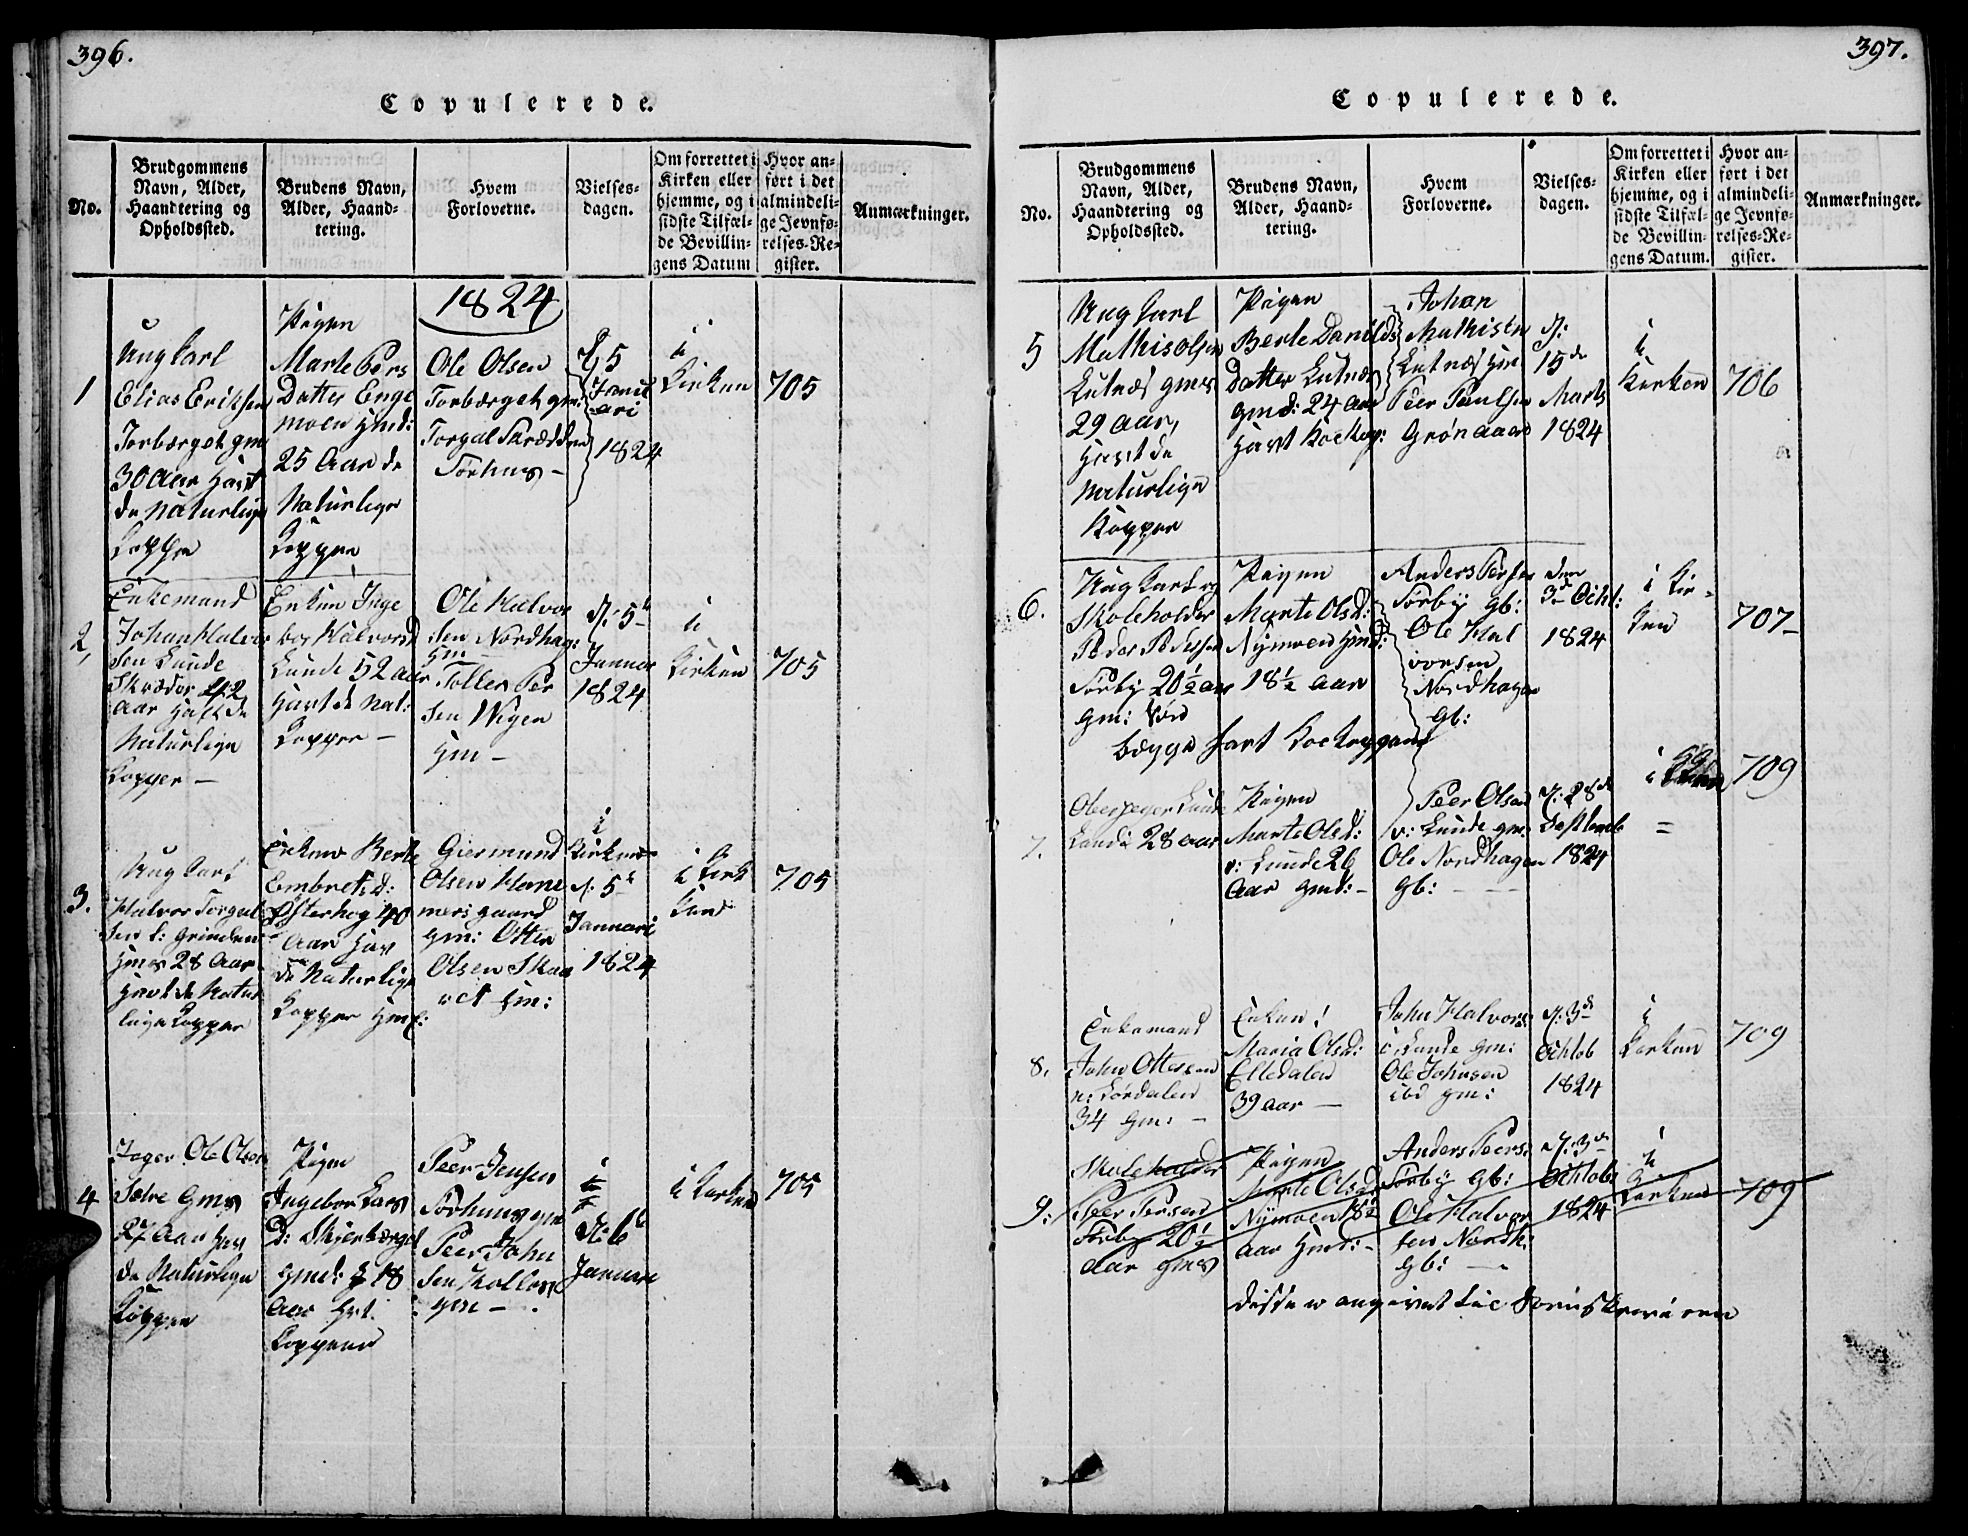 396.
Copulerede.
No.
Brudgommens
Navn, Alder,
Haandtering og
Opholdssted.
Brudens Navn,
Alder, Haand-
tering.
Hvem
Forloverne.
Vielses-
dagen.
Om forrettet i
Kirken eller
hjemme, og i
sidste Tilfæl-
de Bevillin-
gens Datum
Hvor an-
ført i det
almindeli-
ge Jevnfø-
relses-Re-
gister.
Anmærkninger.
1824
1
Ung Karl
Elias Eriksen
Torbærget gm
30 Aar Havt
de Naturlige
Kopper
Pigen
Marte Pers
Datter Enge
moen Hmd:
25 Aar de
Naturlige
Kopper
Ole Olsen
Torbærget gm:
Torgal
Sørhus –
5
Janu
ari
1824
i
Kirken
705
2,
Enkemand
Johan Halvor
sen Lunde
Skræder 42
Aar Havt de
Naturlige
Kopper –
Enken Inge
bor Halvorsd
Lunde 52 aar
Havt de Nat:
Kopper –
Ole Halvor
sen Nordhag:
Hm
Tollev Per
sen Wigen
Hm –
d: 5te
Januar
1824
i
Kirken
705
3.
Ung Karl
Halvor Torgal
sen Grinden
Hmds 28 Aar
Havt de Natur
lige Kopper
Enken Berte
Embret d:
Østerhog 40
Aar Hav
de Naturlige
Kopper Hmd:
Giermund
Olsen Hame
mersgaard
gm: Otter
Olsen Skaa
ret Hm:
i
Kirken
d: 5te
Januari
1824
i Kirk
ken
705
4
Jæger Ole Olsen
Sætre Gms
27 Aar Hav
de Naturlige
Kopper
Pigen
Ingebor Lars
D: Skjerbærget
gmd: 18
Aar Hvt.
Kopperne
Peer Jensen
Sørhus gm
Peer John
sen
gm –
i
d: 6te
Januari
i Kirken
705
397.
Copulerede.
No.
Brudgommens
Navn, Alder,
Haandtering og
Opholdssted.
Brudens Navn,
Alder, Haand-
tering.
Hvem
Forloverne.
Vielses-
dagen.
Om forrettet i
Kirken eller
hjemme, og i
sidste Tilfæl-
de Bevillin-
gens Datum.
Hvor an-
ført i det
almindeli-
ge Jevnfø-
relses-Re-
gister.
Anmærkninger.
5
Ung Karl
Mathis Olsen
Lutnæs gmds
29 aar,
Havt de
Naturlige
Kopper
Pigen
Berte Daniels
Datter Lutnæs
gmd: 24 Aar
Havt Kockop:
Johan
Mathisen
Lutnæs Hm
Peer Poulsen
Grønaaes
d:
15de
Marts
1824
i
Kirken
706
6.
Ung Karl og
Skoleholder
Peder Pedersen
Sørby 20½ aar
gm: Søn
Pigen
Marte Olsd:
Nymoen Hmd:
18½ Aar
begge havt Kockoppene
Anders Persen
Sørby gb:
Ole Hal
vorsen
Nordhagen
gb:
den
3de Octob:
1824
i Kir-
ken
707 –
7.
Oberjeger
Lunde 28 aar
Pigen
Marte Olsd:
v: Lunde 26
Aar gmd: –
Peer Olsen
v: Lunde gm:
Ole Nordhagen
gb: – –
d: 28de
Septemb
1824
i Kirken
=
709
8.
Enkemand
John Ottersen
n: Lørdalen
34 gm: –
Enken!
Maria Olsd:
Elledalen
39 aar –
John Halvors:
v: Lunde gm:
Ole Johnsen
ibd gm:
d: 3de
Octob
1824
i
Kirken
709
9:
Skoleholder
Peer Persen
Sørby 20½
Aar gmds
Pigen
Marte Olsd:
Nymoen 18½
Aar Hmd: –
Anders Peers:
Sørby gb:
Ole Halvor
sen Nordh:
gb: –
d: 3de
Octob:
1824
i
Kirken
709
disse er